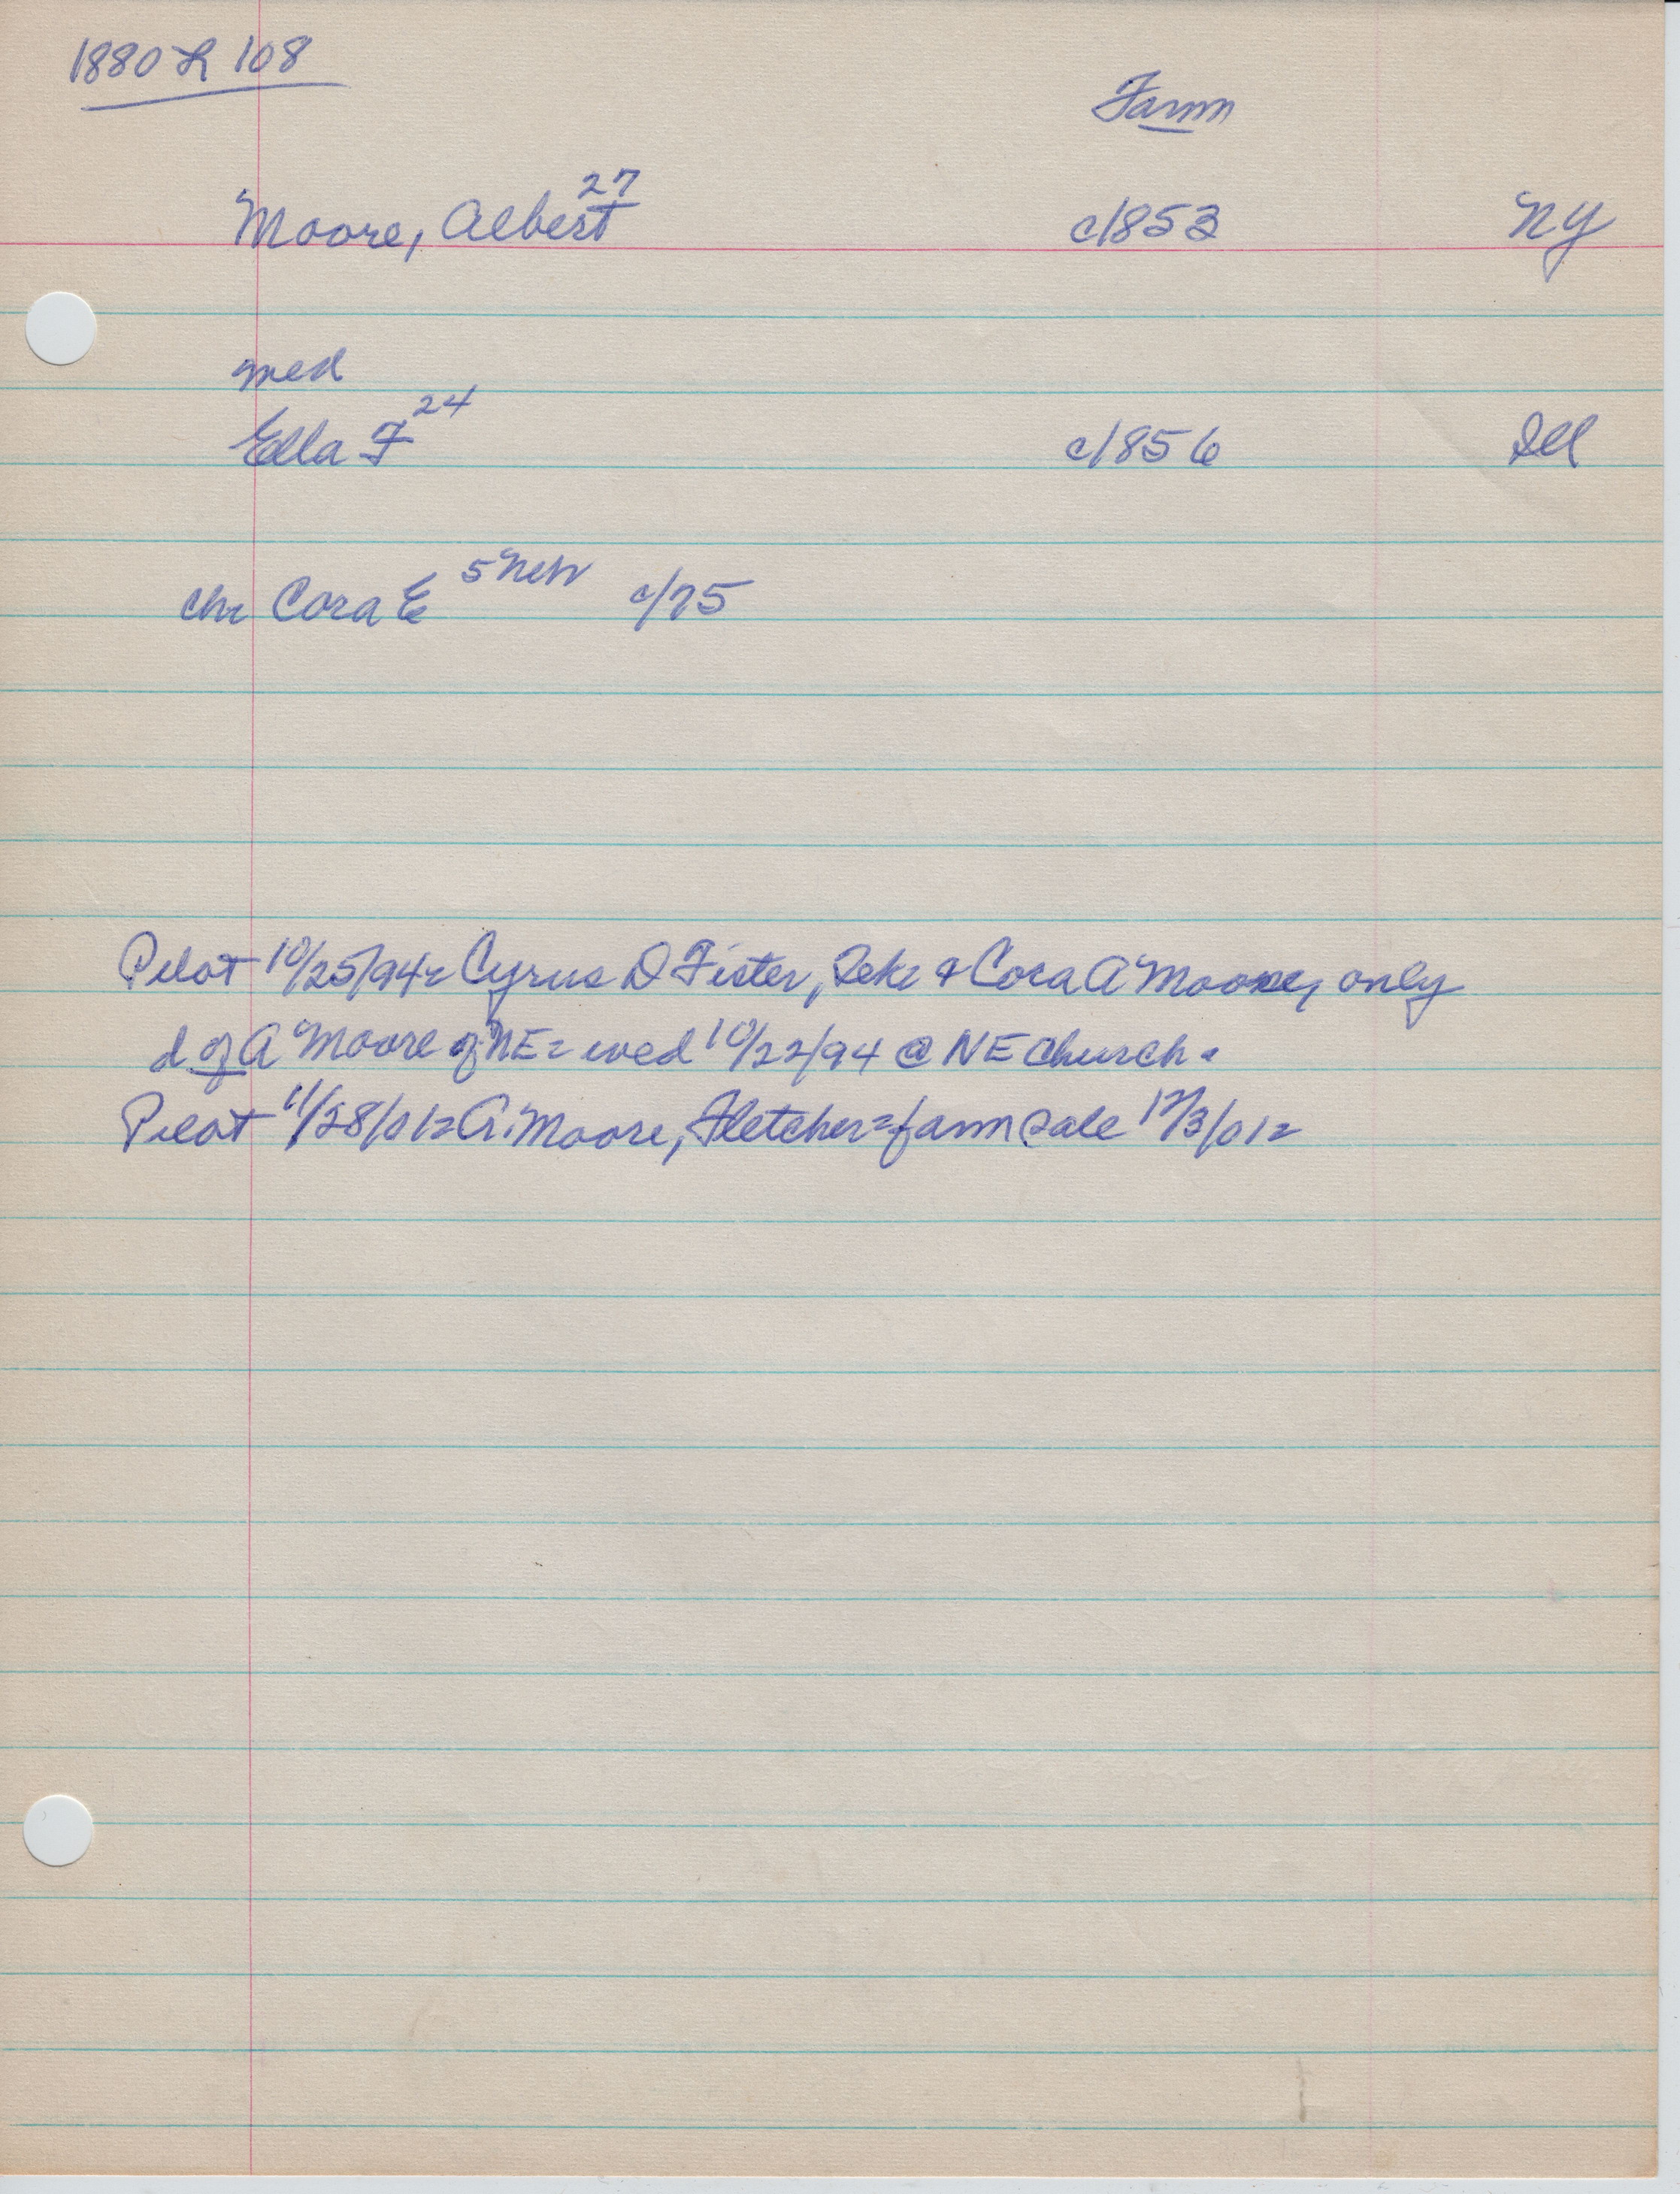 1880 L 108
Farm
Moore, Albert 27 c1853 NY
med
Ella F 24 c1856 Ill
chr Cora E 5 Neb c/75
Pilot 10/25/94= Cyrus D Fister, & Cora A Moore, only
d of A Moore of NE= wed 10/22/94 @ NE Church.
Pilot 11/28/01= A. Moore, Fletcher= farm sale 12/3/01=